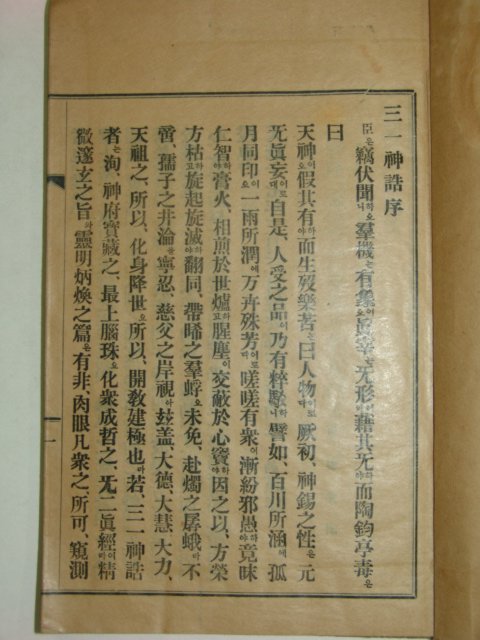 三一神誥序
臣은竊伏聞하오니羣機는有象이오眞宰는无形이라藉其无하야而陶鈞亭毒은
曰
天神이오假其有하야而生歿樂苦는曰人物이라厥初、神錫之性은元
无眞妄이로대自是、人受之品이乃有粹駁하니譬如、百川所涵에孤
月同印이오一雨所潤에万卉殊芳이로다嗟嗟有衆이漸紛邪愚하야竟昧
仁智하야膏火、相煎於世爐하고腥塵이交蔽於心竇하야因之以、方榮
方枯하고旋起旋滅하야翻同、帶晞之羣蜉오未免、赴燭之孱蛾라不
啻、孺子之井淪을寧忍、慈父之岸視아玆盖、大德、大慧、大力、
天祖之、所以、化身降世오所以、開敎建極也라若、三一神誥
者는洵、神府寶藏之、最上腦珠오化衆成哲之、无二眞經이라精
微邃玄之旨와靈明炳煥之篇은有非、肉眼凡衆之、所可、窺測
一